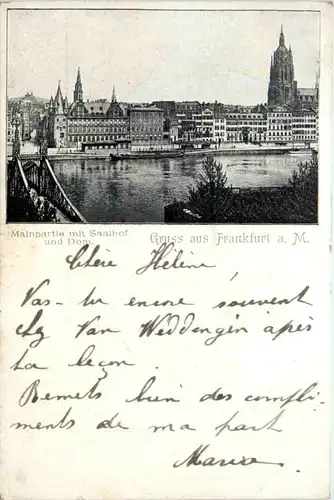 Mainpartie mit Saalhof
und Dom.
Gruss aus Frankfurt a. M.
Chère Hélène,
Vas-tu encore souvent
chez Van Weddengin après
ta leçon.
Remets bien des compli-
ments de ma part
Marie